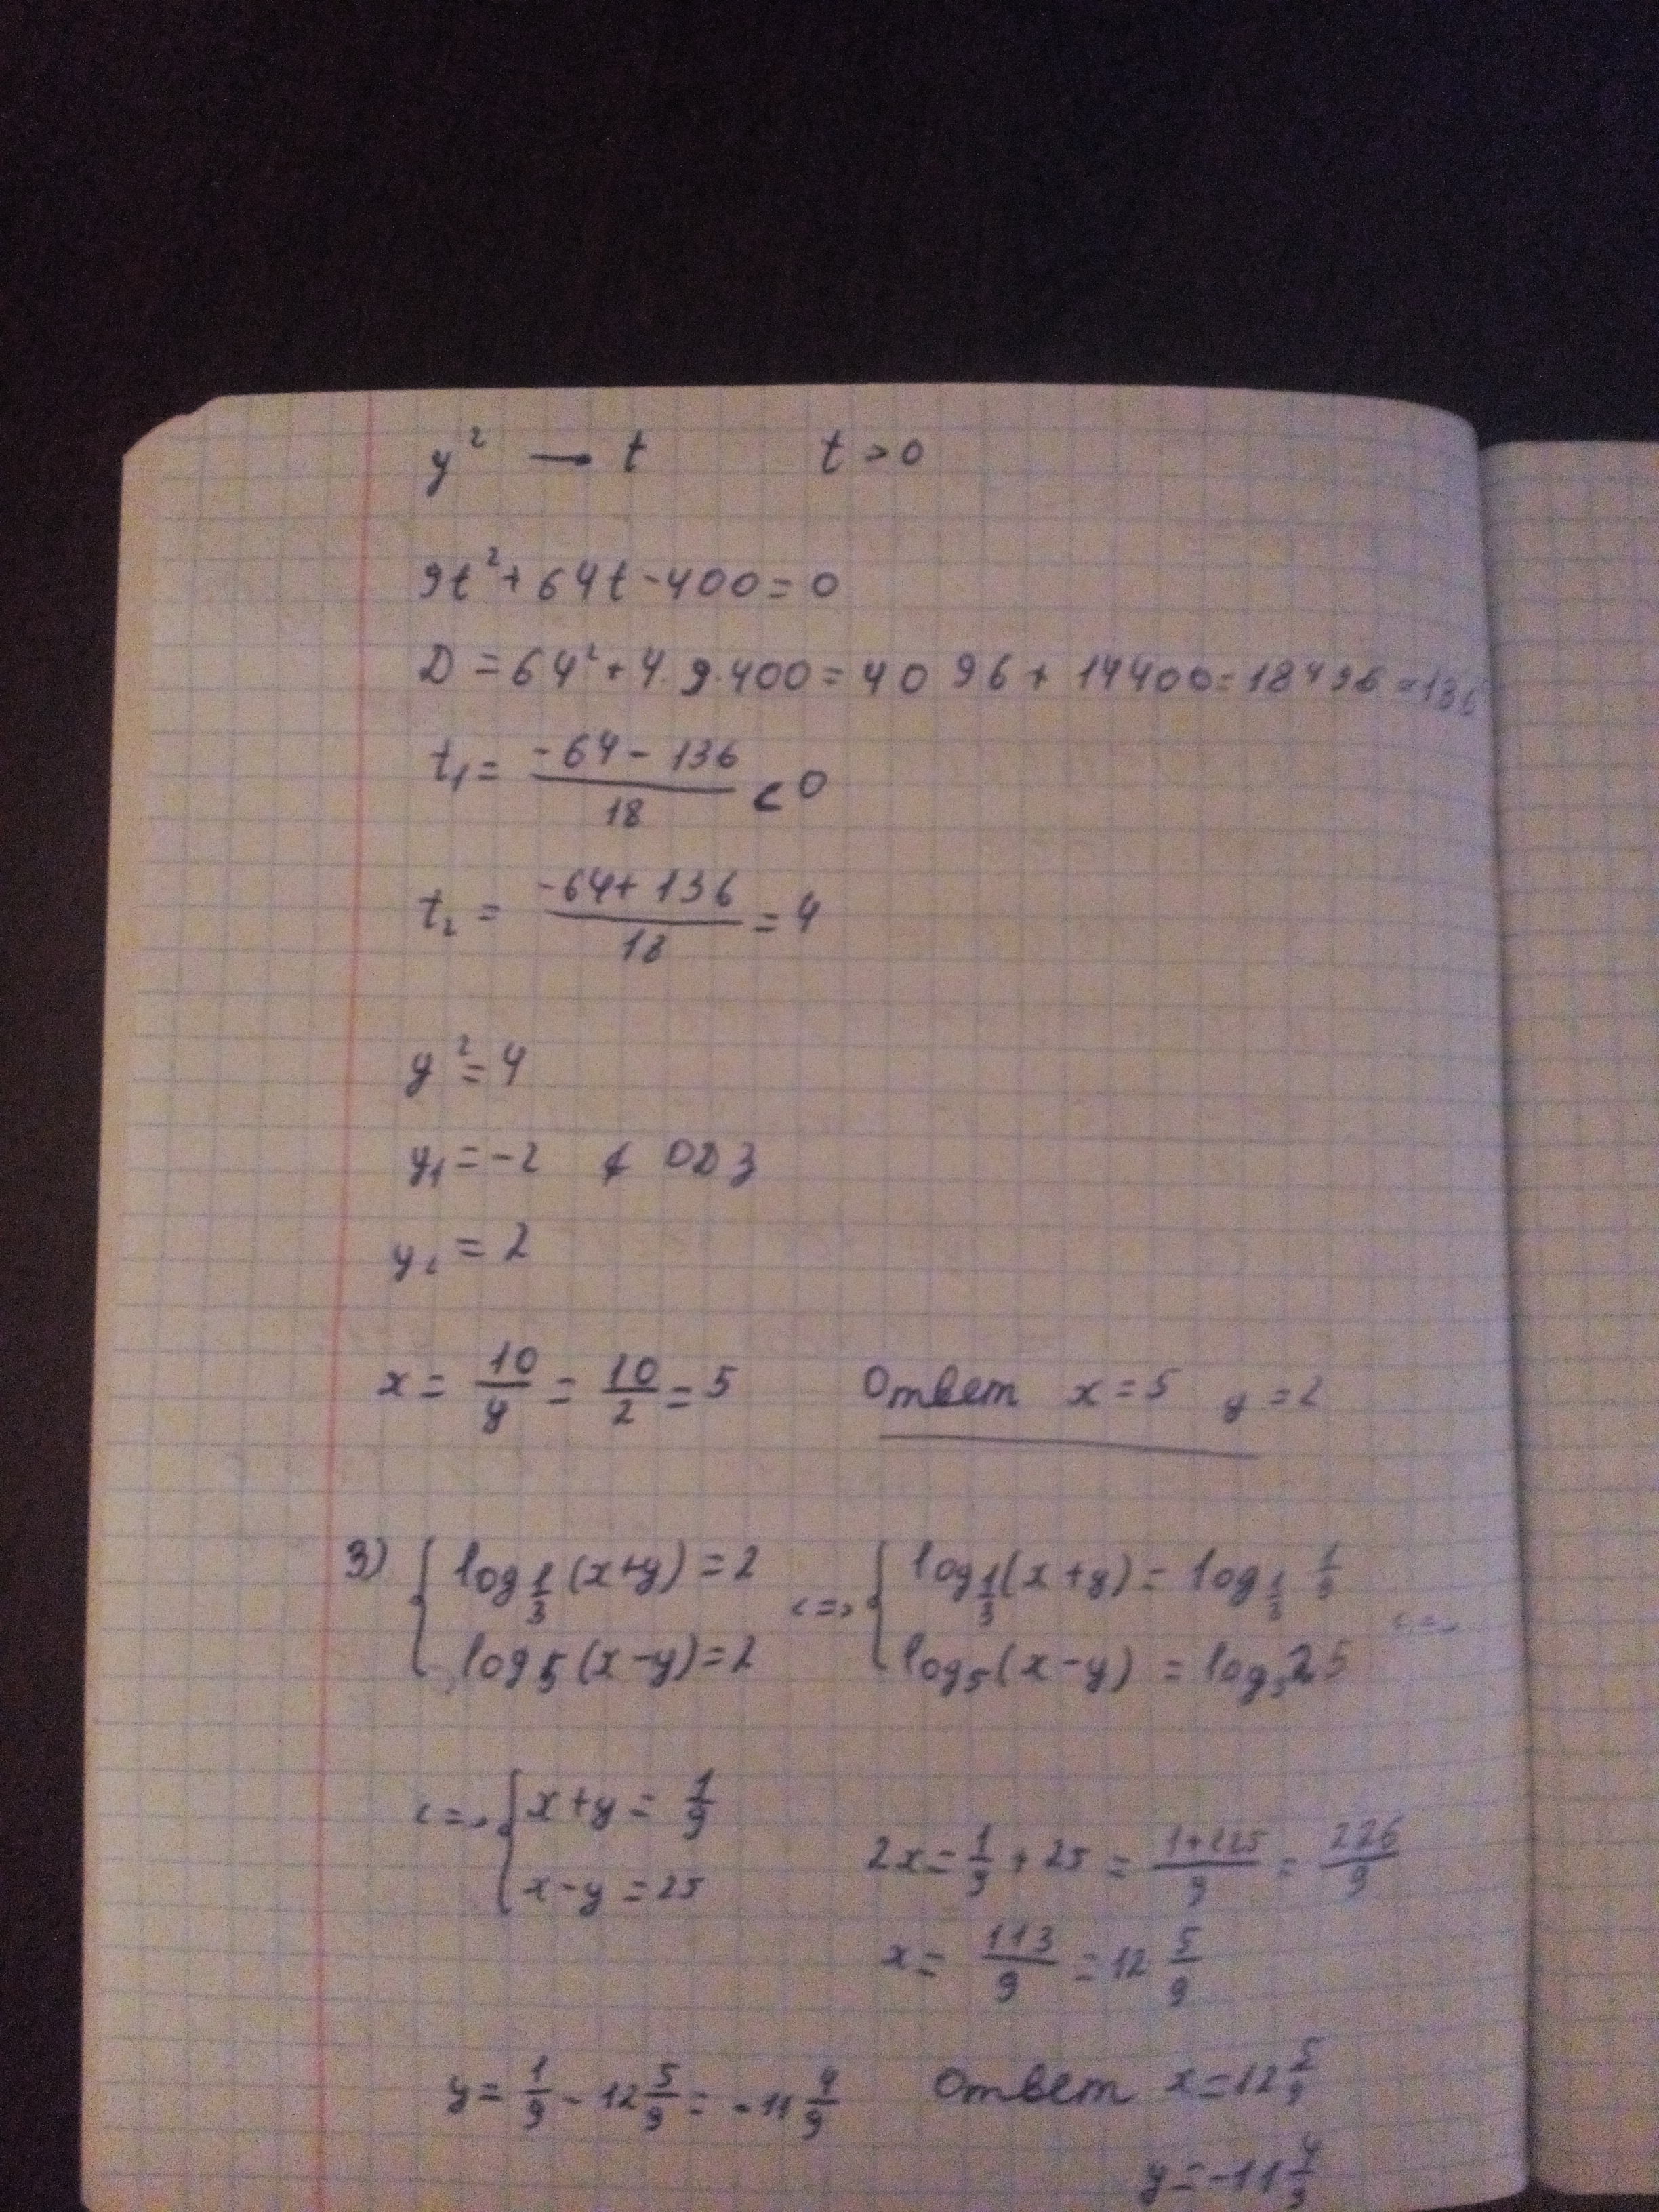 y² → t t > 0
9t² + 64t - 400 = 0
D = 64² + 4·9·400 = 4096 + 14400 = 18496 = 136
t₁ = (-64 - 136)/18 < 0
t₂ = (-64 + 136)/18 = 4
y² = 4
y₁ = -2 ∉ ОДЗ
y₂ = 2
x = 10/y = 10/2 = 5 Ответ x = 5 y = 2
3) { log_{1/3}(x+y) = 2 <=> { log_{1/3}(x+y) = log_{1/3} 1/9 <=>
log₅(x-y) = 2 log₅(x-y) = log₅25
<=> { x+y = 1/9
x-y = 25 2x = 1/9 + 25 = (1+225)/9 = 226/9
x = 113/9 = 12 5/9
y = 1/9 - 12 5/9 = -11 4/9 Ответ x = 12 5/9
y = -11 4/9